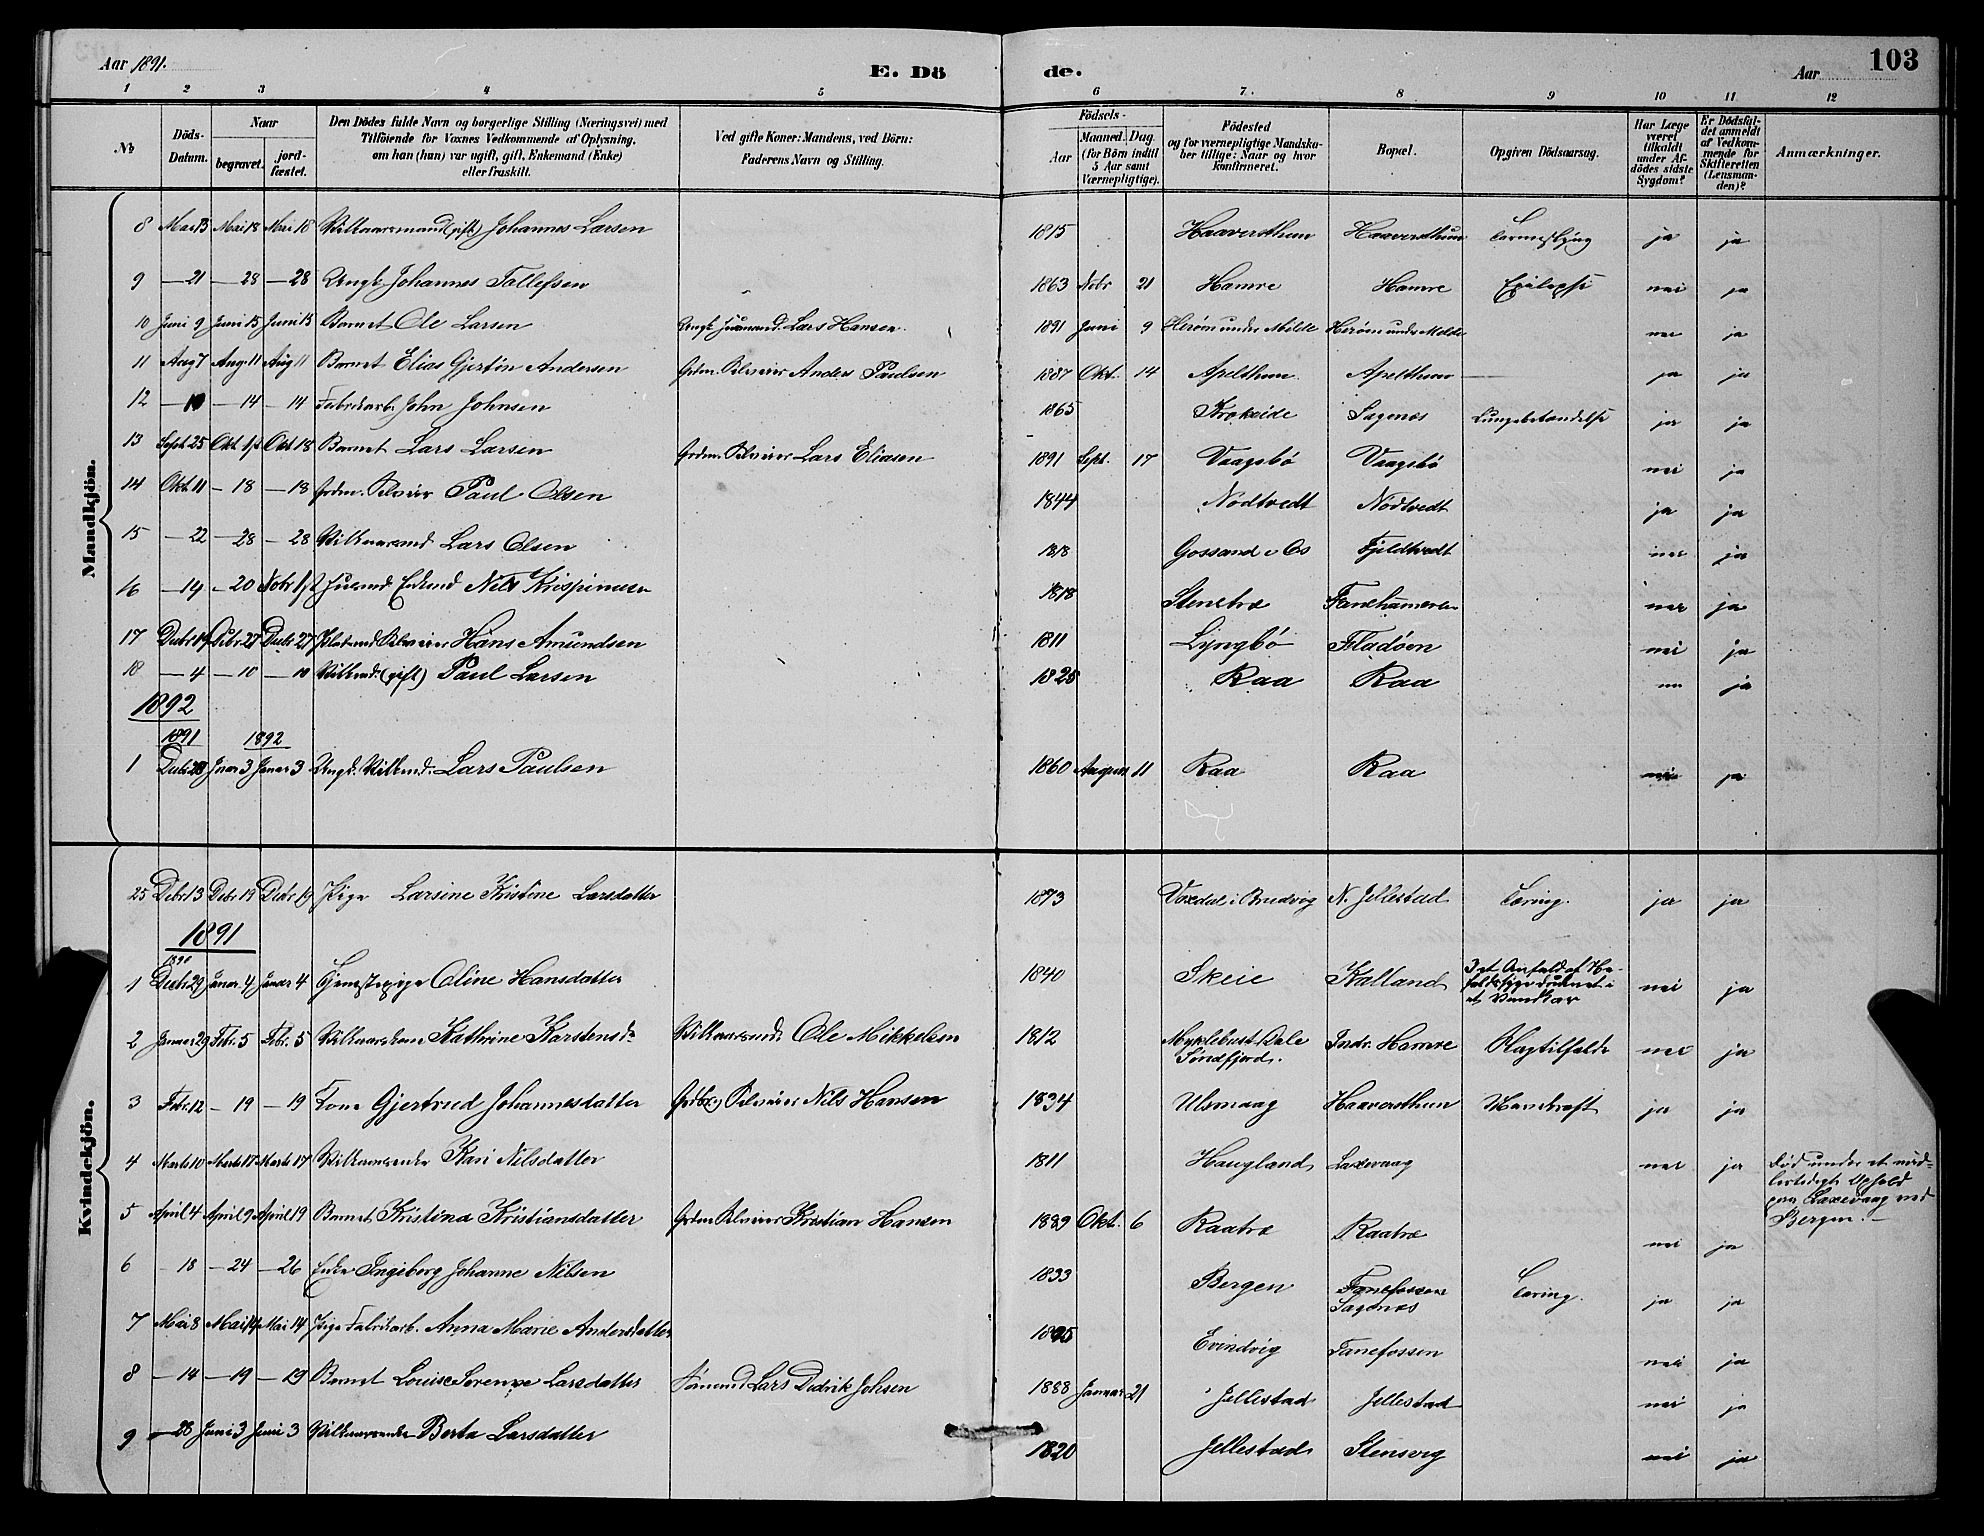 Aar 1891.
E. Dö
de.
Aar
103
1 2 3 4 5 6 7. 8 9 10 11 12
№
Döds-Datum.
Naar
begravet.
jordfæstet.
Den Dödes fulde Navn og borgerlige Stilling (Næringsvei) med
Tilföiende for Voxnes Vedkommende af Oplysning,
om han (hun) var ugift, gift, Enkemand (Enke)
eller fraskilt.
Ved gifte Koner: Mandens, ved Börn:
Faderens Navn og Stilling.
Födsels-
Aar
Maaned. Dag.
(for Börn indtil
5 Aar samt
Værnepligtige).
Födested
og for værnepligtige Mandska-
ber tillige: Naar og hvor
konfirmeret.
Bopæl.
Opgiven Dödsaarsag.
Har Læge
været
tilkaldt
under Af-
dödes sidste
Sygdom?
Er Dödsfal-
det anmeldt
af Vedkom-
mende for
Skifteretten
(Lensman-
den)?
Anmærkninger.
Mandkjön.
8 Mai 13 Mai 18 Mai 18 Vilkaarsmand (gift) Johannes Larsen 1815 Haaversthun Haaversthun ja ja
9 — 21 — 28 — 28 Ungk. Johannes Tollefsen 1863 Nobr 21 Hamre Hamre Epilepsi nei ja
10 Juni 9 Juni 15 Juni 15 Barnet Ole Larsen Ungk. Husmand. Lars Hansen. 1891 Juni 9 Herøen under Milde Herøen under Milde nei ja
11 Aug 7 Aug 11 Aug 11 Barnet Elias Gjertin Andersen Grdm. Selveier Anders Paulsen 1887 Okt. 14 Apelthun Apelthun — ja ja
12 — 10 — 14 — 14 Fabrikarb. John Johnsen 1865 Krokeide Sagenæs Lungebetændelse ja ja
13 Sept 25 Okt 1 Okt 18 Barnet Lars Larsen Grdm. Selveier Lars Eliasen 1891 Sept. 17 Vaagsbø Vaagsbø nei ja
14 Okt 11 — 18 — 18 Grdm. Selveier Paul Olsen 1844 Nodtvedt Nodtvedt ja ja
15 — 22 — 28 — 28 Vilkaarsmd Lars Olsen 1818 Gossand i Os Fjeldtvedt nei ja
16 — 14 — 20 Nobr 1 Husmd. Enkmd Nils Krispinusen 1818 Stenetræ Fanehameren nei ja
17 Decbr 19 Decbr 27 Decbr 27 Selveier Hans Amundsen 1811 Lyngbø Fladøen nei ja
18 — 4 — 10 — 10 Vilkmd. (gift) Paul Larsen 1825 Raa Raa nei ja
1892
1891 1892
1 Decbr 28 Janr 3 Janr 3 Ungk. Vilkmd. Lars Paulsen 1860 August 11 Raa Raa nei ja
Kvindekjön.
25 Debr 13 Debr 19 Debr 19 Pige Larsine Kristine Larsdatter 1873 Voxdal i Bruvig N. Jellestad Tæring. ja ja
1891
1890
1 Decb 29 Januar 4 Januar 4 Tjenestepige Oline Hansdatter 1840 Skeie Kalland I et Anfald af Fa-
ldesyge druknet i
et Vandkar nei ja
2 Januar 29 Febr. 5 Febr. 5 Vilkaarskone Kathrine Karstensdr Vilkaarsmd. Ole Mikkelsen 1812 Myklebust Dale
Søndfjord. Indr. Hamre Slagtilfælde nei ja
3 Febr. 12 — 19 — 19 Kone Gjertrud Johannesdatter Selveier Nils Hansen 1834 Ulsmaag Haaversthun ja ja
4 Marts 10 Marts 17 Marts 17 Vilkaarsenke Kari Nilsdatter 1811 Haugland Laxevaag nei ja Død under et mid-
lertidigt Ophold
paa Laxevaag ved
Bergen. —
5 April 4 April 9 April 19 Barnet Kristina Kristiansdatter Grdm. Selveier Kristian Hansen 1889 Okt. 6 Raatræ Raatræ nei ja
6 — 18 — 24 — 26 Enke Ingeborg Johanne Nilsen 1833 Bergen Fanefossen
Sagenæs Tæring. ja ja
7 Mai 8 Mai 14 Mai 14 Pige Fabrikarb. Anna Marie Andersdatter Evindvig Fanefossen nei ja
8 — 14 — 19 — 19 Barnet Louise Serense Larsdatter Lars Didrik Johsen 1888 Januar 21 Jellestad Jellestad nei ja
9 — 28 Juni 3 Juni 3 Vilkaarsenke Berta Larsdatter 1820 Jellestad Stensvig nei ja